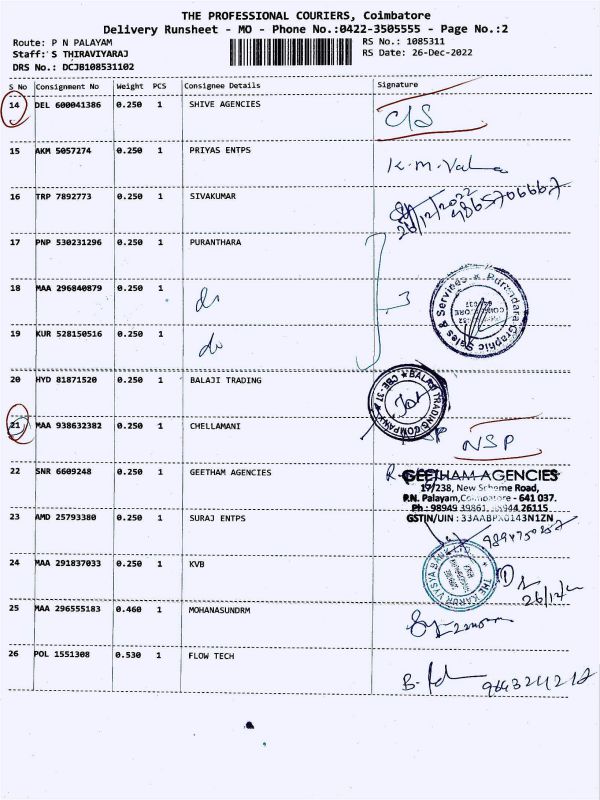 THE PROFESSIONAL COURIERS, Coimbatore
Delivery Runsheet - MO - Phone No.:0422-3505555 - Page No.:2
Route: P N PALAYAM RS No.: 1085311
Staff: S THIRAVIYARAJ RS Date: 26-Dec-2022
DRS No.: DCJB108531102
S No Consignment No Weight PCS Consignee Details Signature
14 DEL 600041386 0.250 1 SHIVE AGENCIES C/S
15 AKM 5057274 0.250 1 PRIYAS ENTPS K.M.
16 TRP 7892773 0.250 1 SIVAKUMAR
26/12/2022
17 PNP 530231296 0.250 1 PURANTHARA
18 MAA 296840879 0.250 1 do 3
Purandara Graphic Sales & Services
19 KUR 528150516 0.250 1 do
20 HYD 81871520 0.250 1 BALAJI TRADING
BALAJI TRADING COMPANY CBE-37
21 MAA 938632382 0.250 1 CHELLAMANI NSP
22 SNR 6609248 0.250 1 GEETHAM AGENCIES GEETHAM AGENCIES
17/238, New Scheme Road,
P.N. Palayam, Coimbatore - 641 037.
Ph : 98949 39861, 26115
23 AMD 25793380 0.250 1 SURAJ ENTPS GSTIN/UIN :
24 MAA 291837033 0.250 1 KVB
THE KARUR VYSYA BANK LTD.
26/12/
25 MAA 296555183 0.460 1 MOHANASUNDRM
26 POL 1551308 0.530 1 FLOW TECH